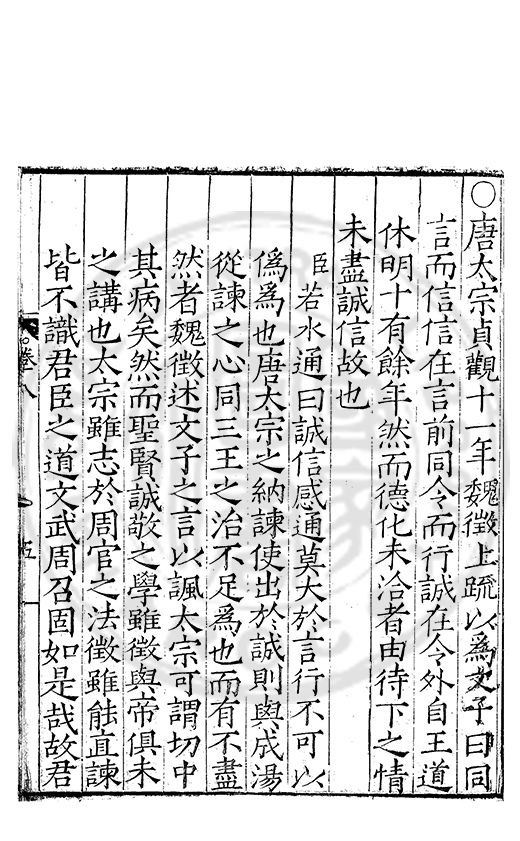 ○唐太宗貞觀十一年魏徵上疏以爲文子曰同
言而信信在言前同令而行誠在令外自王道
休明十有餘年然而德化未洽者由待下之情
未盡誠信故也
臣若水通曰誠信感通莫大於言行不可以
僞爲也唐太宗之納諫使出於誠則與成湯
從諫之心同三王之治不足爲也而有不盡
然者魏徵述文子之言以諷太宗可謂切中
其病矣然而聖賢誠敬之學雖徵與帝俱未
之講也太宗雖志於周官之法徵雖能直諫
皆不識君臣之道文武周召固如是哉故君
卷八
五